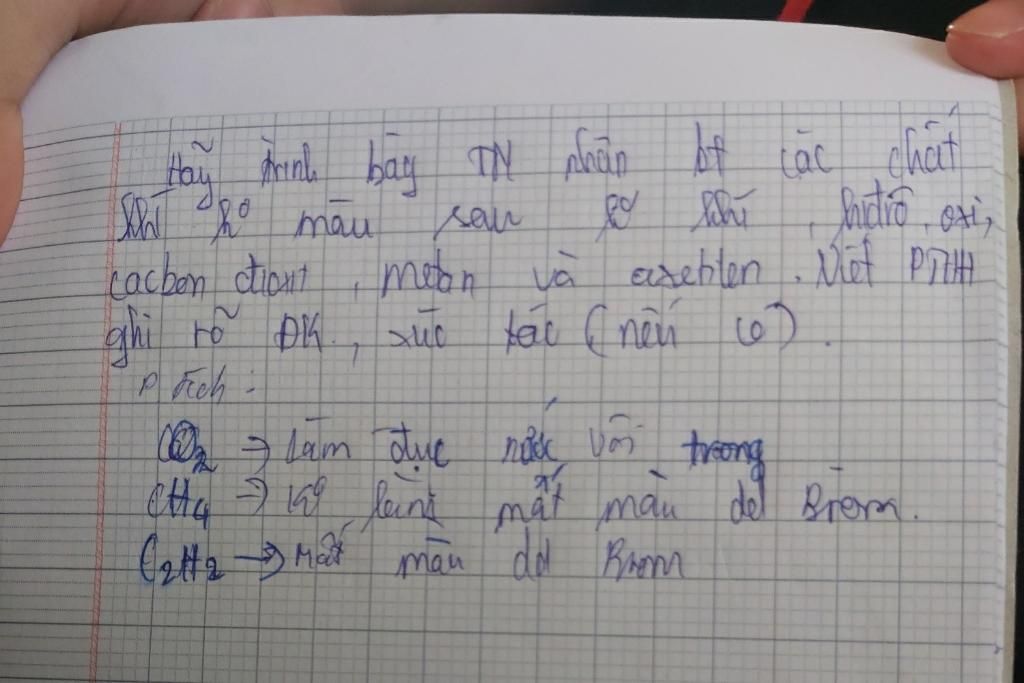 Hãy trình bày TN nhận bt các chất
khí ko màu sau ko khí, hiđrô, oxi,
cacbon đioxit, metan và axetilen. Viết PTHH
ghi rõ ĐK, xúc tác (nếu có).
P tích:
CO2 => Làm đục nước vôi trong
CH4 => ko làm mất màu dd Brom.
C2H2 -> Mất màu dd Brom